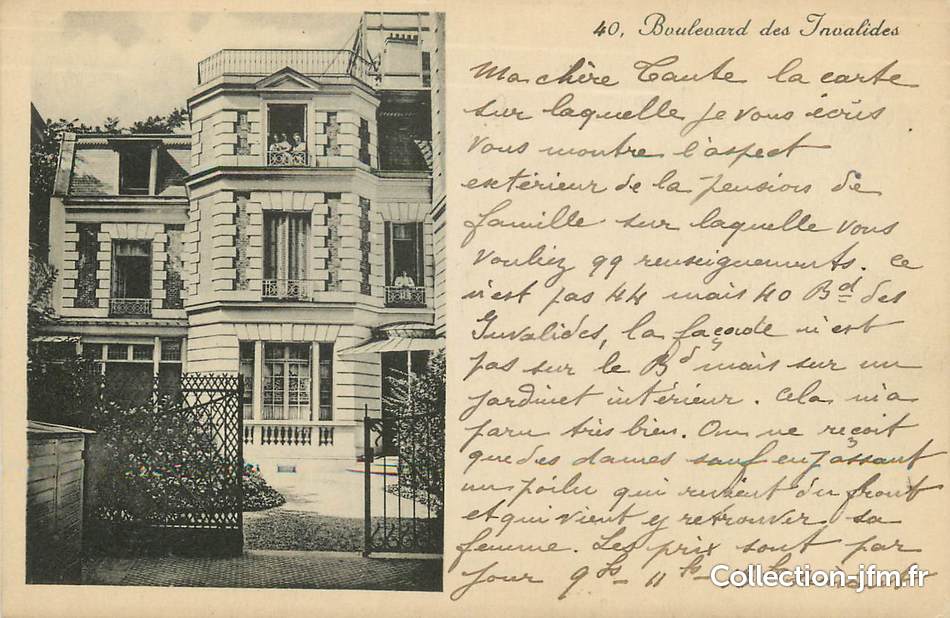 40, Boulevard des Invalides
Ma chère Tante la carte
sur laquelle je vous écris
vous montre l'aspect
extérieur de la pension de
famille sur laquelle vous
vouliez qq renseignements. Ce
n'est pas 44 mais 40 Bd des
Invalides, la façade n'est
pas sur le Bd mais sur un
jardinet intérieur. Cela m'a
paru très bien. On ne reçoit
que des dames sauf en passant
un poilu qui revient du front
et qui vient y retrouver sa
femme. Les prix sont par
jour 9fs 11fs
Collection-jfm.fr